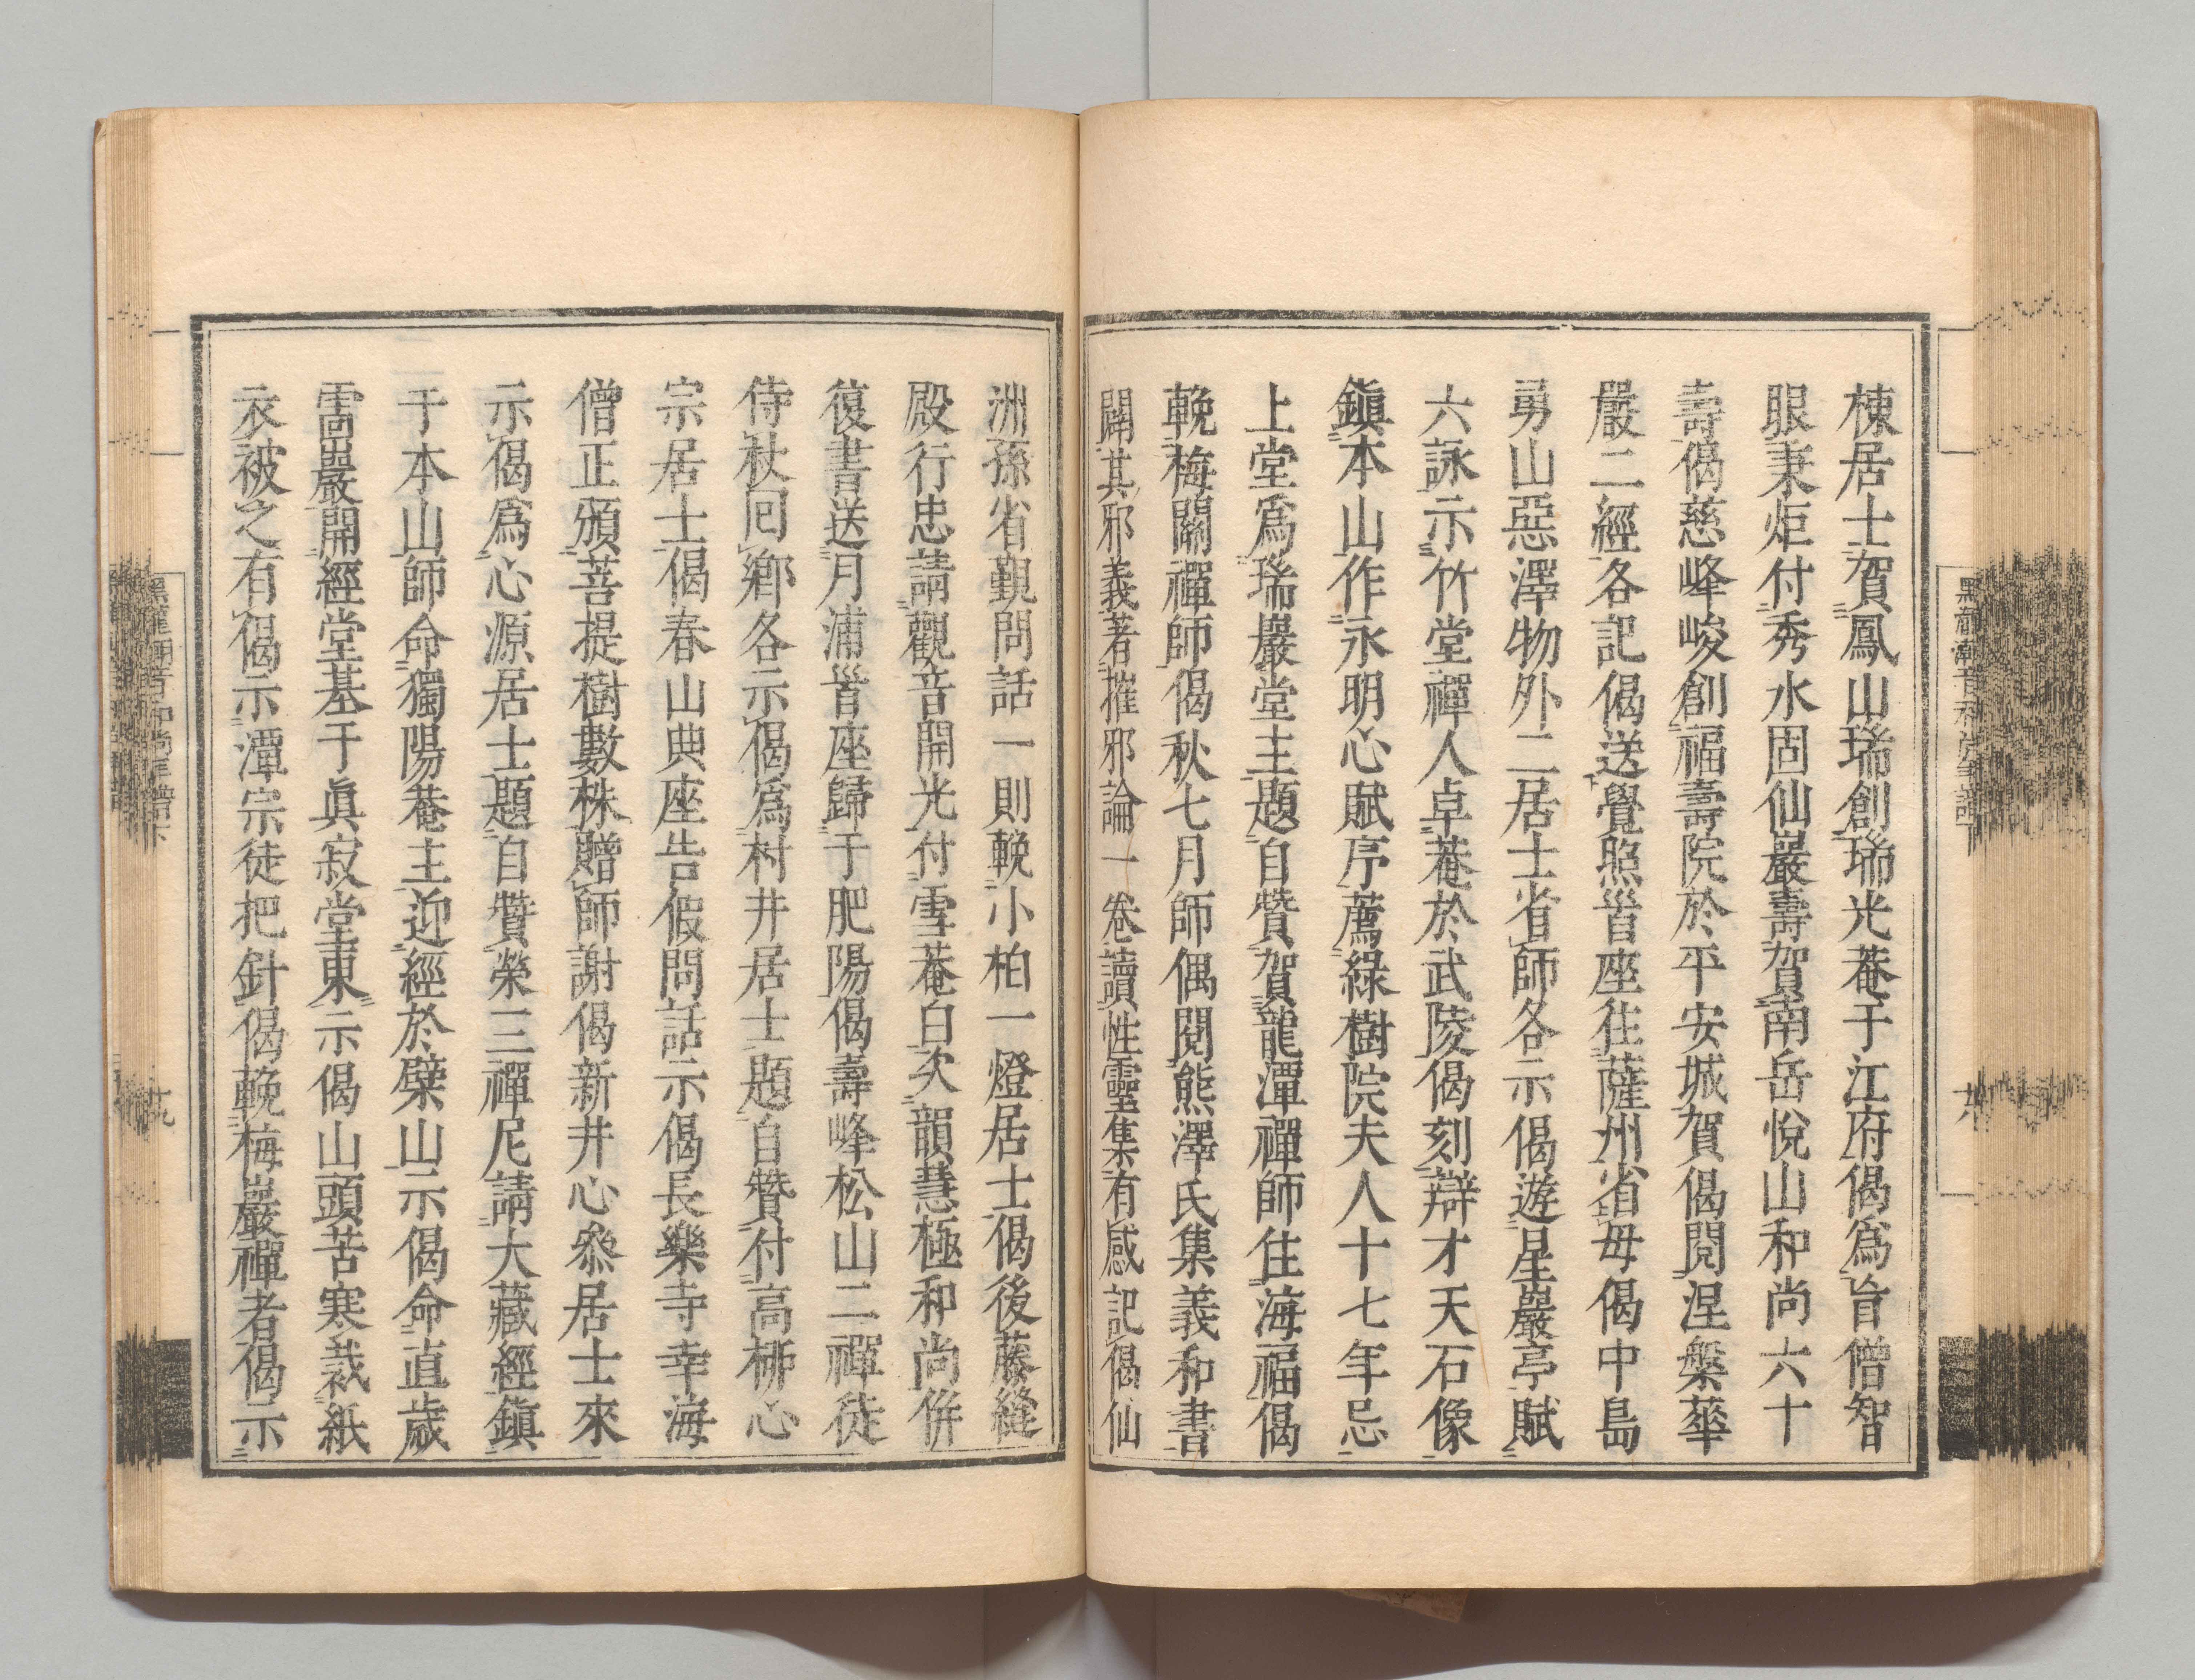 棟居士賀鳳山瑞創瑞光菴于江府偈爲旨僧智
眼秉炬付秀水固仙巖壽賀南岳悅山和尚六十
壽偈慈峰峻創福壽院於平安城賀偈閱涅槃華
嚴二經各記偈送覺照首座往薩州省母偈中島
勇山惡澤物外二居士省師各示偈遊星巖亭賦
六詠示竹堂禪人卓菴於武陵偈刻辯才天石像
鎭本山作永明心賦序薦綠樹院夫人十七年忌
上堂爲瑞巖堂主題自贊賀龍潭禪師住海福偈
輓梅關禪師偈秋七月師偶閱熊澤氏集義和書
闢其邪義著摧邪論一卷讀性靈集有感記偈仙
洲孫省覲問話一則輓小柏一燈居士偈後藤縫
殿行忠請觀音開光付雪菴白次韻慧極和尚併
復書送月浦首座歸于肥陽偈壽峰松山二禪徒
侍杖回鄉各示偈爲村井居士題自贊付高柳心
宗居士偈春山典座告假問話示偈長樂寺幸海
僧正頒菩提樹數株贈師謝偈新井心叅居士來
示偈爲心源居士題自贊榮三禪尼請大藏經鎭
于本山師命獨陽菴主迎經於檗山示偈命直歲
雪巖開經堂基于眞寂堂東示偈山頭苦寒裁紙
衣被之有偈示潭宗徒把針偈輓梅巖禪者偈示